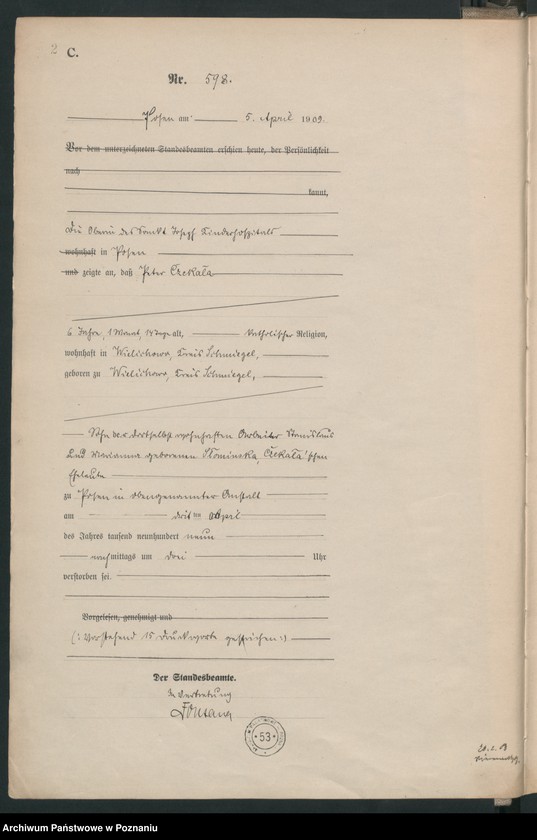 2 C.
Nr. 598.
Posen am 5. April 1909.
Vor dem unterzeichneten Standesbeamten erschien heute, der Persönlichkeit
nach
kannt,
Die Oberin des Sankt Joseph Kinderhospitals
wohnhaft in Posen
und zeigte an, daß Peter Czekała
6 Jahre, 1 Monat, 14 Tage alt, katholischer Religion,
wohnhaft in Wielichowo, Kreis Schmiegel,
geboren zu Wielichowo, Kreis Schmiegel,
Sohn der daselbst wohnhaften Arbeiter Stanislaus
und Marianna geborenen Słominska, Czekała'schen
Eheleute
zu Posen in obengenannter Anstalt
am dritten April
des Jahres tausend neunhundert neun
nachmittags um drei Uhr
verstorben sei.
Vorgelesen, genehmigt und
(: Vorstehend 15 Druckworte gestrichen :)
Der Standesbeamte.
In Vertretung
Fontana
53
Archiwum Państwowe w Poznaniu